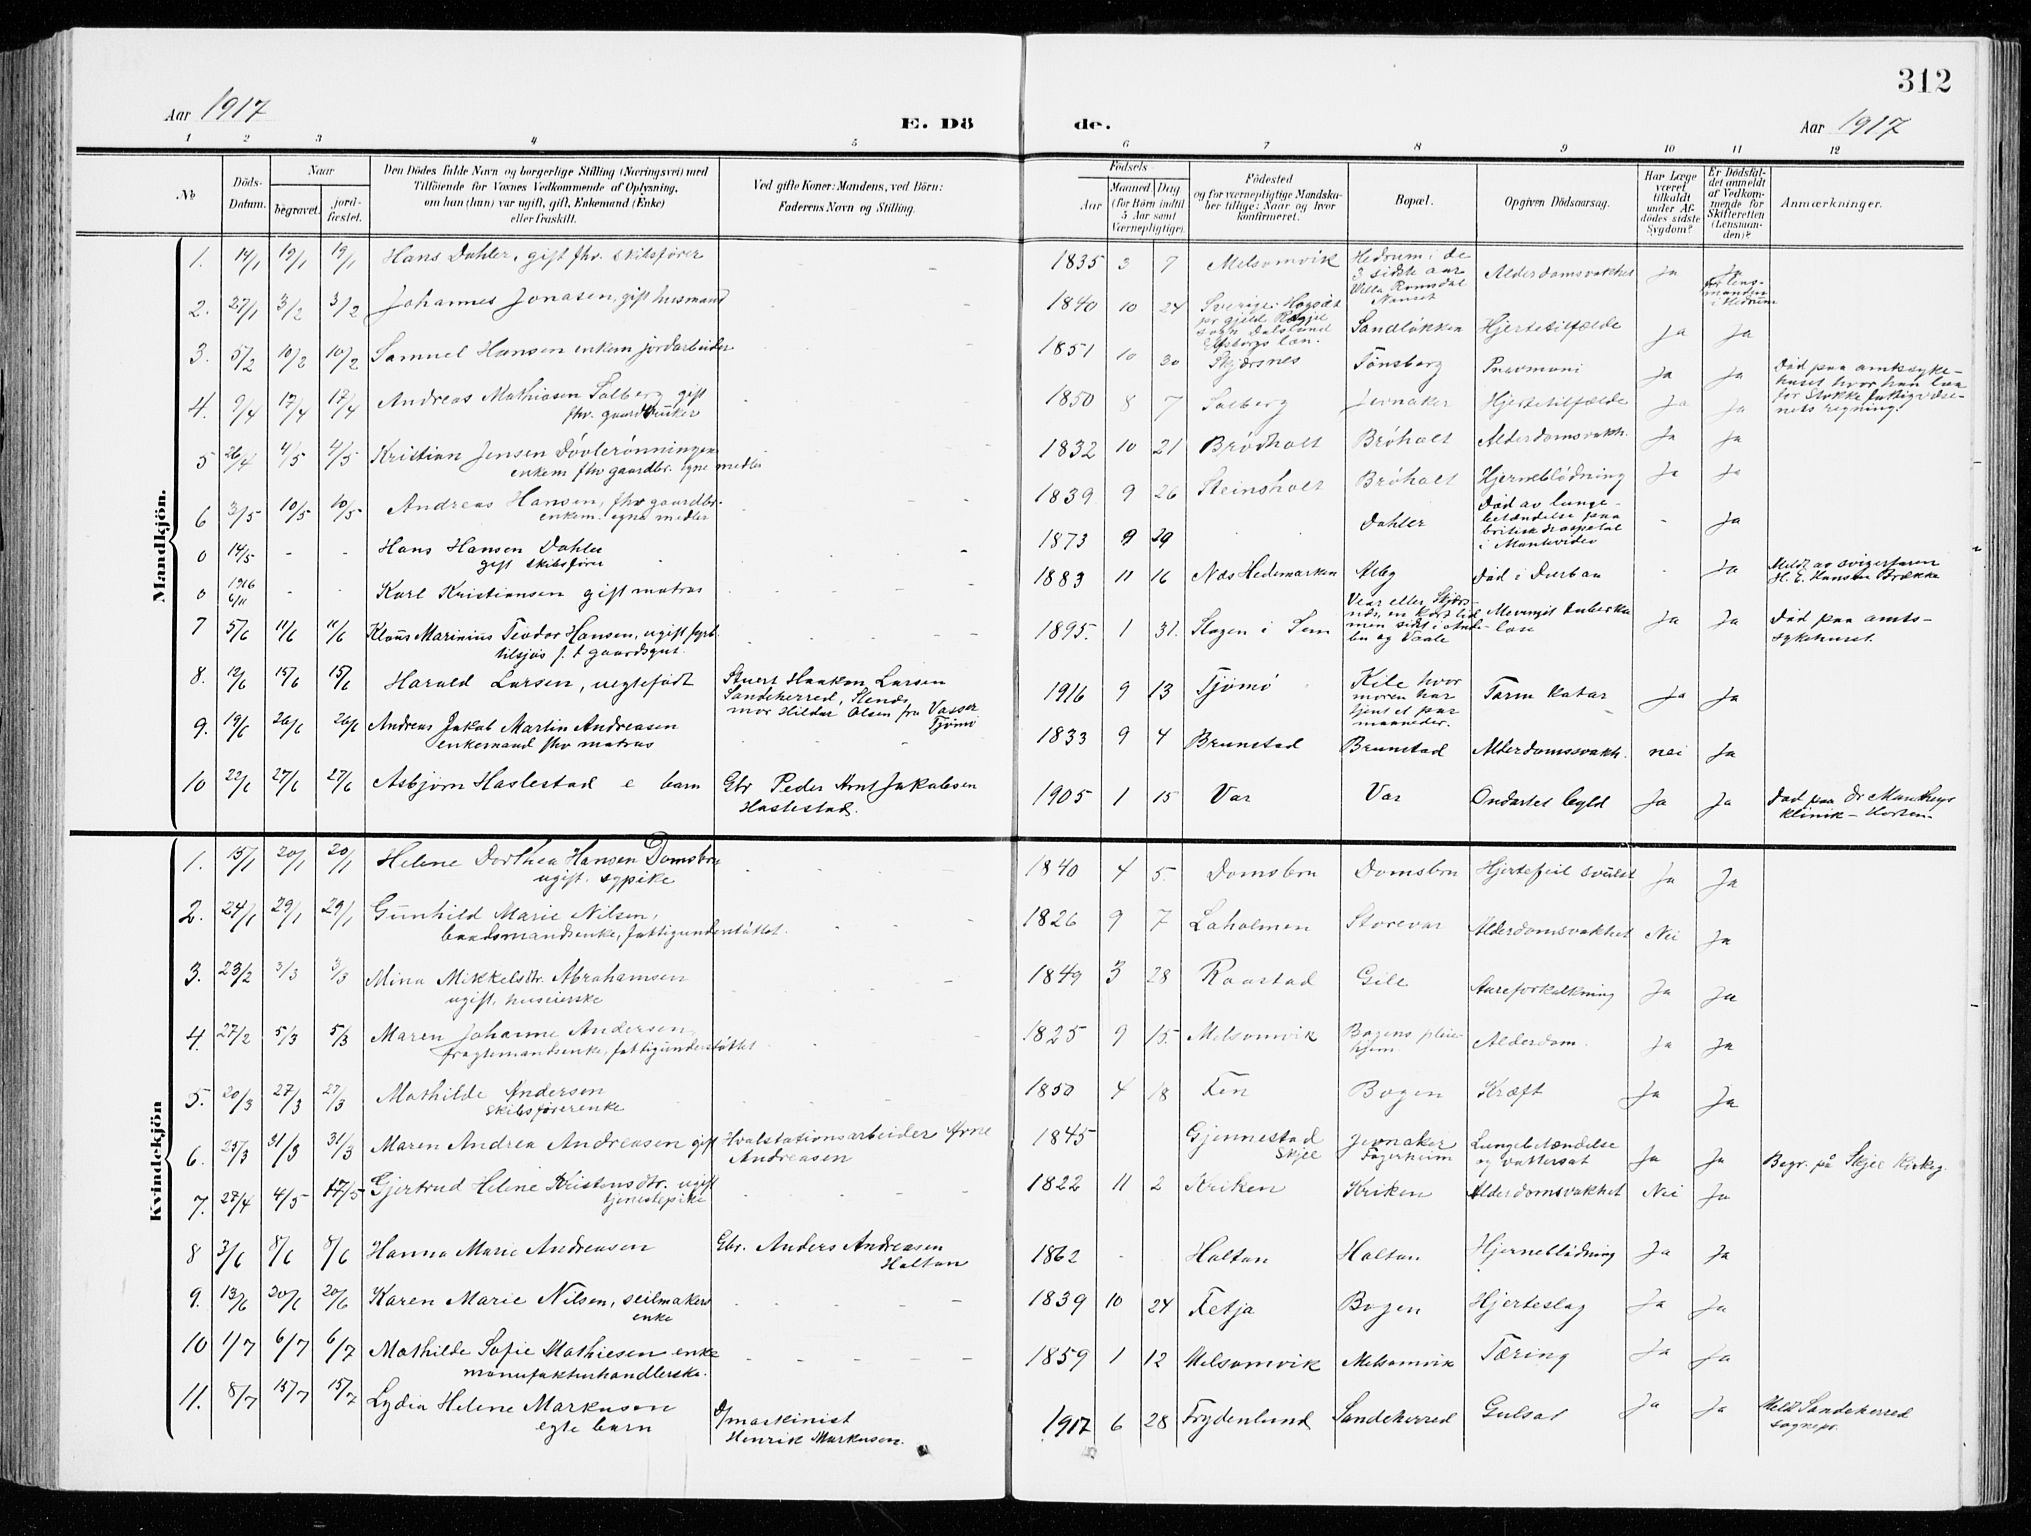 312
Aar 1917
E. Dö
de.
Aar 1917
1 2 3 4 5 6 7 8 9 10 11 12
No.
Döds-
Datum.
Naar
begravet.
jord-
fæstet.
Den Dödes fulde Navn og borgerlige Stilling (Næringsvei) med
Tilföiende for Voxnes Vedkommende af Oplysning,
om han (hun) var ugift, gift, Enkemand (Enke)
eller fraskilt.
Ved gifte Koner: Mandens, ved Börn:
Faderens Navn og Stilling.
Födsels-
Aar
Maaned
Dag
(for Börn indtil
5 Aar samt
Værnepligtige).
Födested
og for værnepligtige Mandska-
ber tillige: Naar og hvor
konfirmeret.
Bopæl.
Opgiven Dödsaarsag.
Har Læge
været
tilkaldt
under Af-
dödes sidste
Sygdom?
Er Dödsfal-
det anmeldt
af Vedkom-
mende for
Skifteretten
(Lensman-
den)?
Anmærkninger.
Mandkjön.
1. 14/1 19/1 19/1 Hans Dahler, gift fhv. skibsfører - - 1835 3 7 Melsomvik Hedrum i de
3 sidste aar
Villa Romsdal
Nanset Alderdomsvakhet Ja Ja
for lens-
manden
i Hedrum
2. 27/1 3/2 3/2 Johannes Jonasen, gift husmand 1840 10 24 Sverige
Sandløkken Hjertetilfælde Ja Ja
3. 5/2 10/2 10/2 Samuel Hansen enkem jordarbeider 1851 10 30 Skjærsnes Tønsberg Pnevmoni Ja Ja Død paa amtssyke-
huset hvor han laa
for Stokke fattigvæse-
nets regning.
4. 9/4 17/4 17/4 Andreas Mathiasen Solberg gift
fhv. gaardbruker 1850 8 7 Solberg Jernaker Hjertetilfælde Ja Ja
5 26/4 4/5 4/5 Kristian Jensen Døvlerønningen
enkem fhv gaardbr. egne medler 1832 10 21 Brøtholt Brøholt Alderdomsvakh. Ja Ja
6 3/5 10/5 10/5 Andreas Hansen, fhv gaardbr.
enkem. egne medler 1839 9 26 Steinsholt Brøholt Hjerneblødning Ja Ja
0 14/5 - - Hans Hansen Dahler
gift skibsfører 1873 9 29 Dahler Død av lunge-
betændelse paa
britisk hospital
i Montevideo - Ja
0 1916
6/11 - - Karl Kristiansen gift matros 1883 11 16 Nes Hedemarken Alby Død i Durban - Ja Meldt av svigerfaren
H. E. Hansen Brække
7 5/6 11/6 11/6 Klaus Marinius Teodor Hansen, ugift fyrb.
tilsjøs f. t gaardsgut. 1895. 1 31. Slagen i Sem Vear eller Skjærs-
nes, en kort tid
men sidst i
og Vaale Ja Ja Død paa amts-
sykehuset.
8. 12/6 15/6 15/6 Harald Larsen, uegtefødt Stuert Haakon Larsen
Sandeherred,
mor Hilda Olsen fra Vasser
Tjømø 1916 9 13 Tjømø Kile hvor
moren har
tjent et par
maaneder. Tarm katar Ja Ja
9. 19/6 26/6 26/6 Andreas Jakob Martin Andreasen
enkemand fhv matros 1833 9 4 Brunstad Brunstad Alderdomssvakh. nei Ja
10 22/6 27/6 27/6 Asbjørn Haslestad e barn Gbr Peder Arnt Jakobsen
Haslestad. 1905 1 15 Var Var Ondartet byld Ja Ja Død paa Dr
klinik - Horten
Kvindekjön
1. 15/1 20/1 20/1 Helene Dorthea Hansen Domsbru
ugift. sypike 1840 4 5. Domsbru Domsbru Hjertefeil svulst Ja Ja
2. 24/1 29/1 29/1 Gunhild Marie Nilsen,
baadsmandsenke, fattigunderstøttet. 1826 9 7 Laholmen Storevar Alderdomsvakhet Nei Ja
3. 23/2 3/3 3/3 Mina Mikkelsdtr. Abrahamsen
ugift, huseierske 1849 3 28 Raastad Gile Aareforkalkning Ja Ja
4. 27/2 5/3 5/3 Maren Johanne Andersen,
fragtemandsenke, fattigunderstøttet 1825 9 15. Melsomvik Bogens pleie-
hjem Alderdom. Ja Ja
5. 20/3 27/3 27/3 Mathilde Andersen
skibsførerenke 1850 4 18 Fen Bogen Kræft Ja Ja
6. 25/3 31/3 31/3 Maren Andrea Andreasen gift Hvalstationsarbeider Arne
Andreasen 1845 Gjennestad
Skjee Jernaker
Fagerheim Lungebetændelse
og vattersot Ja Ja Begr. på Skjee kirkeg.
7. 27/4 4/5 17/5 Gjertrud Helene Kristensdtr. ugift
tjenestepike 1822 11 2 Kriken Kriken Alderdomsvakhet Nei Ja
8 3/6 8/6 8/6 Hanna Marie Andreasen Gbr. Anders Andreasen
Holtan 1862 - - Holtan Holtan Hjerneblødning Ja Ja
9. 13/6 20/6 20/6 Karen Marie Nilsen, seilmakers
enke 1839 10 24 Fetja Bogen Hjerteslag Ja Ja
10 1/7 6/7 6/7 Mathilde Sofie Mathiesen enke
manufakturhandlerske. 1859 1 12 Melsomvik Melsomvik Tæring Ja Ja
11. 8/7 15/7 15/7 Lydia Helene Markusen
egte barn D/maskinist
Henrik Markusen. 1917 6 28 Frydenlund Sandeherred Gulsot Ja Ja Meldt Sandeherred
sognepr.